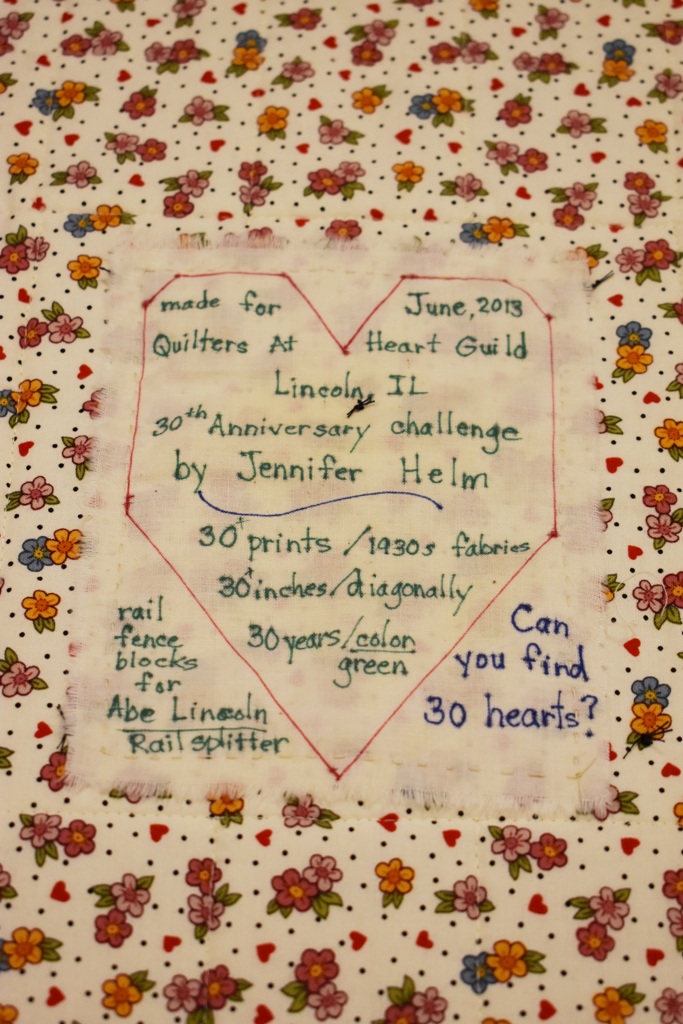 made for June, 2013
Quilters At Heart Guild
Lincoln, IL
30th Anniversary challenge
by Jennifer Helm
30+ prints / 1930s fabries
30+ inches / diagonally
30 years / colon
green
rail
fence
blocks
for
Abe Lincoln
Railsplitter
Can
you find
30 hearts?